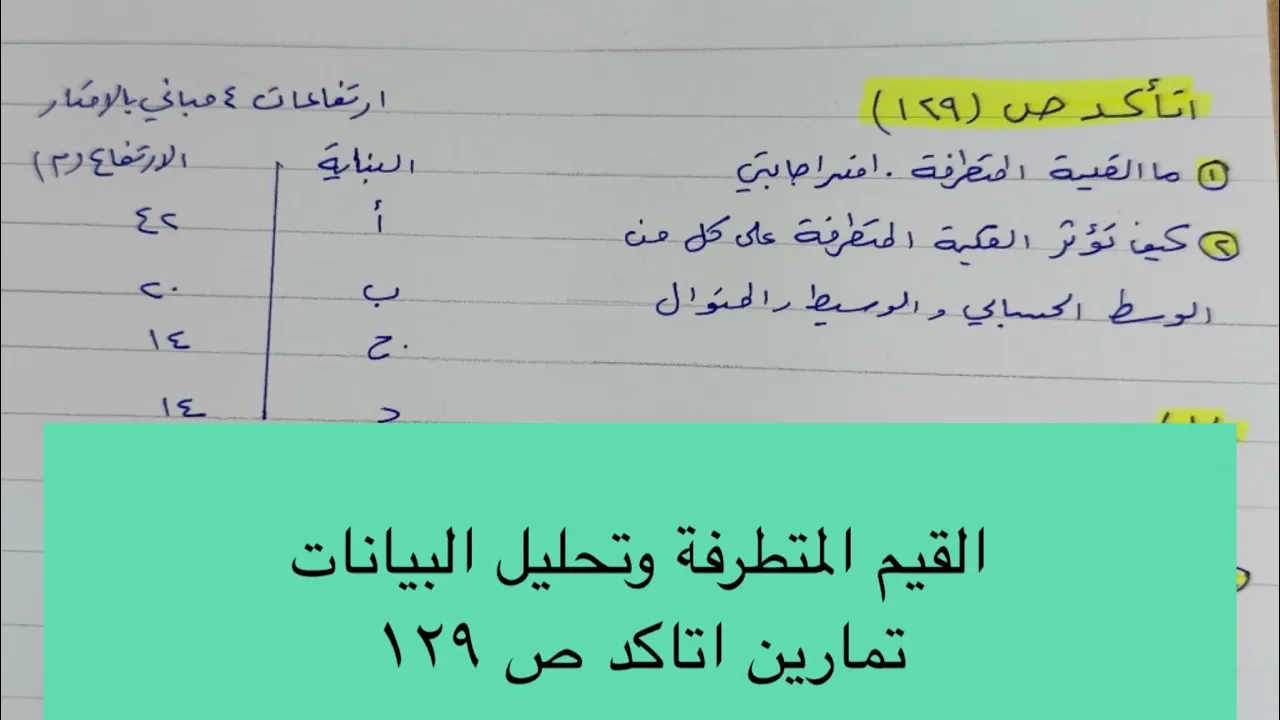 اتأكد ص (١٢٩)
① ما القيمة المتطرفة . افسر اجابتي
② كيف تؤثر القيمة المتطرفة على كل من
الوسط الحسابي والوسيط والمنوال
ارتفاعات ٤ مباني بالامتار
البناية الارتفاع (م)
أ ٤٢
ب ٢٠
ج ١٤
د ١٤
القيم المتطرفة وتحليل البيانات
تمارين اتاكد ص ١٢٩